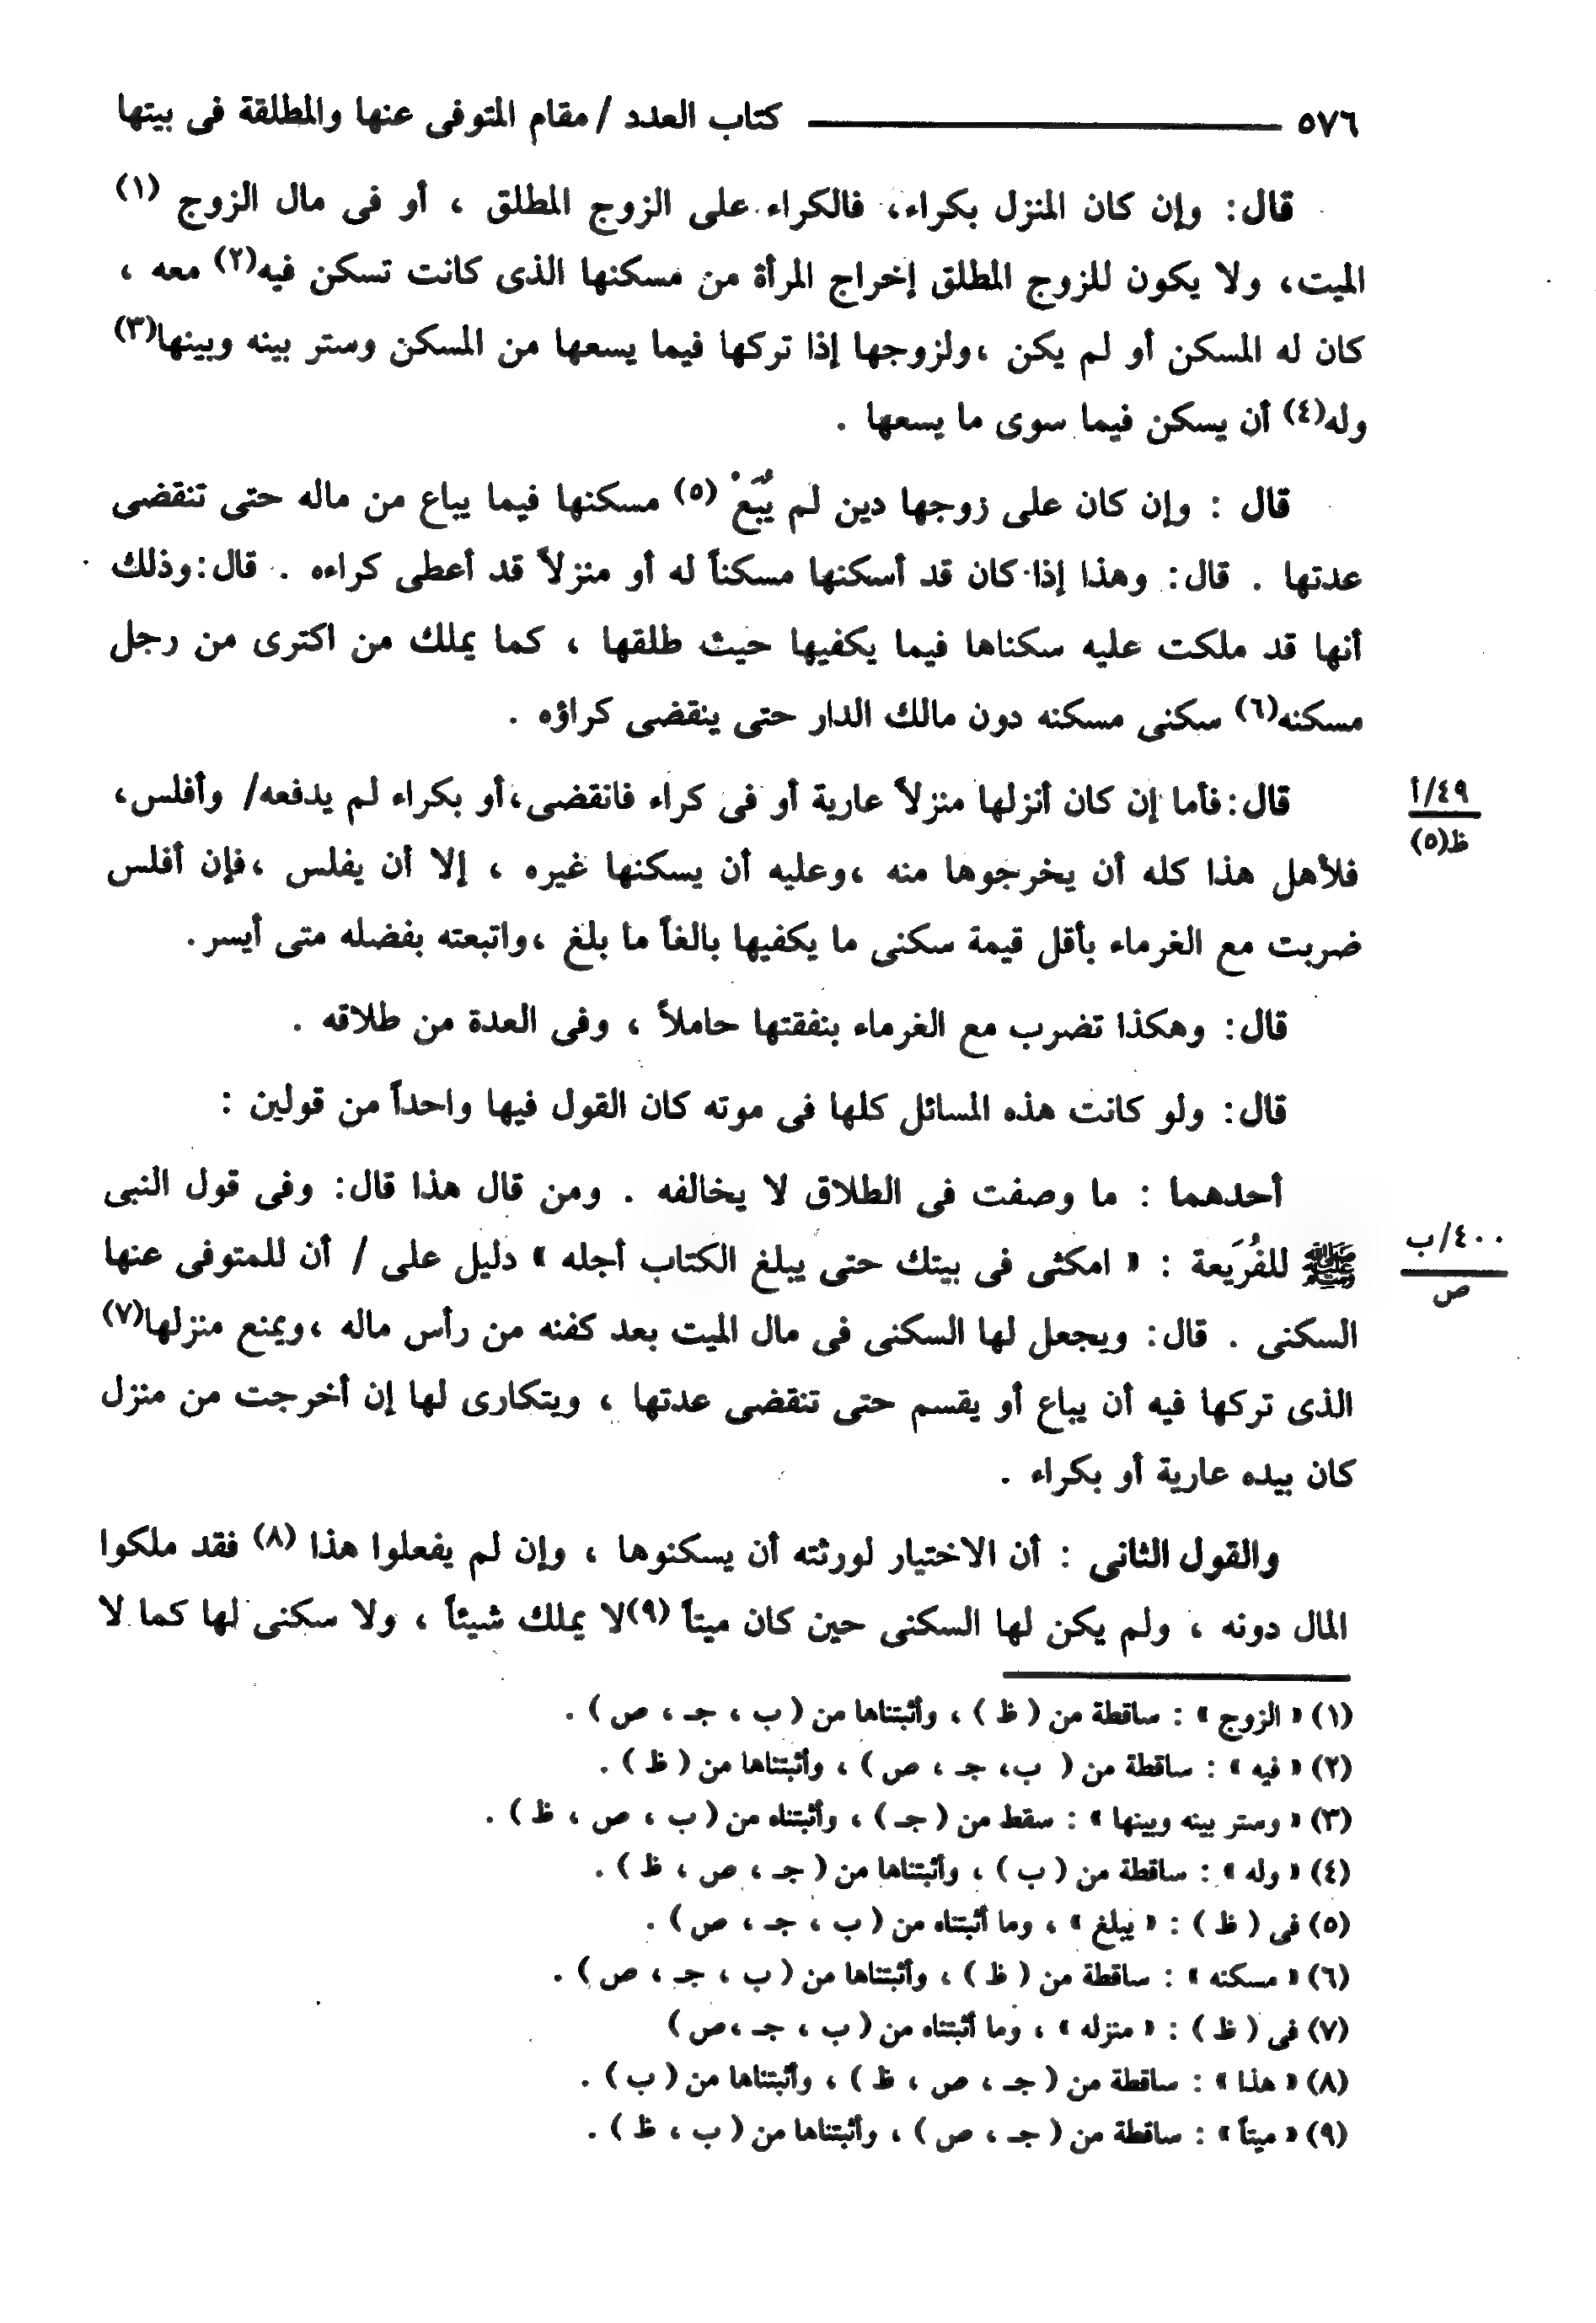 ٥٧٦ كتاب العدد / مقام المتوفى عنها والمطلقة فى بيتها
قال: وإن كان المنزل بكراء، فالكراء على الزوج المطلق ، أو فى مال الزوج (١)
الميت، ولا يكون للزوج المطلق إخراج المرأة من مسكنها الذى كانت تسكن فيه(٢) معه ،
كان له المسكن أو لم يكن ،ولزوجها إذا تركها فيما يسعها من المسكن وستر بينه وبينها(٣)
وله(٤) أن يسكن فيما سوى ما يسعها .
قال : وإن كان على زوجها دين لم يُبَعْ (٥) مسكنها فيما يباع من ماله حتى تنقضى
عدتها . قال: وهذا إذا كان قد أسكنها مسكناً له أو منزلاً قد أعطى كراءه . قال:وذلك
أنها قد ملكت عليه سكناها فيما يكفيها حيث طلقها ، كما يملك من اكترى من رجل
مسكنه(٦) سكنى مسكنه دون مالك الدار حتى ينقضى كراؤه .
قال:فأما إن كان أنزلها منزلاً عارية أو فى كراء فانقضى،أو بكراء لم يدفعه/ وأفلس،
٤٩/أ
ظ(٥)
فلأهل هذا كله أن يخرجوها منه ،وعليه أن يسكنها غيره ، إلا أن يفلس ،فإن أفلس
ضربت مع الغرماء بأقل قيمة سكنى ما يكفيها بالغاً ما بلغ ،واتبعته بفضله متى أيسر.
قال: وهكذا تضرب مع الغرماء بنفقتها حاملاً ، وفى العدة من طلاقه .
قال: ولو كانت هذه المسائل كلها فى موته كان القول فيها واحداً من قولين :
أحدهما : ما وصفت فى الطلاق لا يخالفه . ومن قال هذا قال: وفى قول النبى
ﷺ للفُرَيعة : « امكثى فى بيتك حتى يبلغ الكتاب أجله » دليل على / أن للمتوفى عنها
٤٠٠/ب
ص
السكنى . قال: ويجعل لها السكنى فى مال الميت بعد كفنه من رأس ماله ،ويمنع منزلها(٧)
الذى تركها فيه أن يباع أو يقسم حتى تنقضى عدتها ، ويتكارى لها إن أخرجت من منزل
كان بيده عارية أو بكراء .
والقول الثانى : أن الاختيار لورثته أن يسكنوها ، وإن لم يفعلوا هذا (٨) فقد ملكوا
المال دونه ، ولم يكن لها السكنى حين كان ميتاً (٩)لا يملك شيئاً ، ولا سكنى لها كما لا
(١) « الزوج » : ساقطة من ( ظ ) ، وأثبتناها من ( ب ، جـ ، ص ) .
(٢) « فيه » : ساقطة من ( ب، جـ ، ص ) ، وأثبتناها من ( ظ ) .
(٣) « وستر بينه وبينها » : سقط من ( جـ ) ، وأثبتناه من ( ب ، ص ، ظ ) .
(٤) « وله » : ساقطة من ( ب ) ، وأثبتناها من ( جـ ، ص ، ظ ) .
(٥) فى ( ظ ) : « يبلغ » ، وما أثبتناه من ( ب ، جـ ، ص ) .
(٦) « مسكنه » : ساقطة من ( ظ ) ، وأثبتناها من ( ب ، جـ ، ص ) .
(٧) فى ( ظ ) : « منزله » ، وما أثبتناه من ( ب ، جـ ،ص )
(٨) « هذا » : ساقطة من ( جـ ، ص ، ظ ) ، وأثبتناها من ( ب ) .
(٩) « ميتاً » : ساقطة من ( جـ ، ص ) ، وأثبتناها من ( ب ، ظ ) .